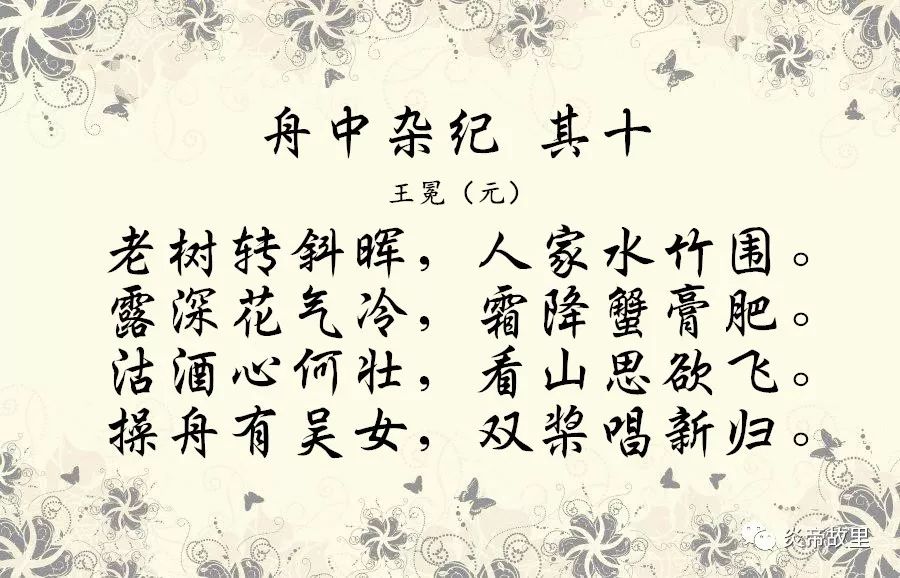 舟中杂纪 其十
王冕（元）
老树转斜晖，人家水竹围。
露深花气冷，霜降蟹膏肥。
沽酒心何壮，看山思欲飞。
操舟有吴女，双桨唱新归。
炎帝故里